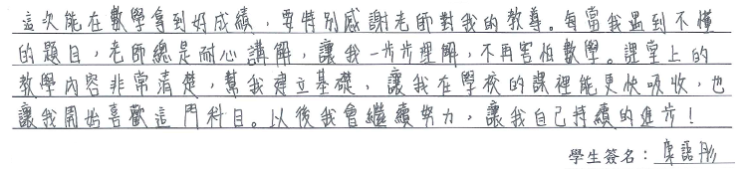 這次能在數學拿到好成績，要特別感謝老師對我的教導。每當我遇到不懂
的題目，老師總是耐心講解，讓我一步步理解，不再害怕數學。課堂上的
教學內容非常清楚，幫我建立基礎，讓我在學校的課裡能更快吸收，也
讓我開始喜歡這門科目。以後我會繼續努力，讓我自己持續的進步！
學生簽名：